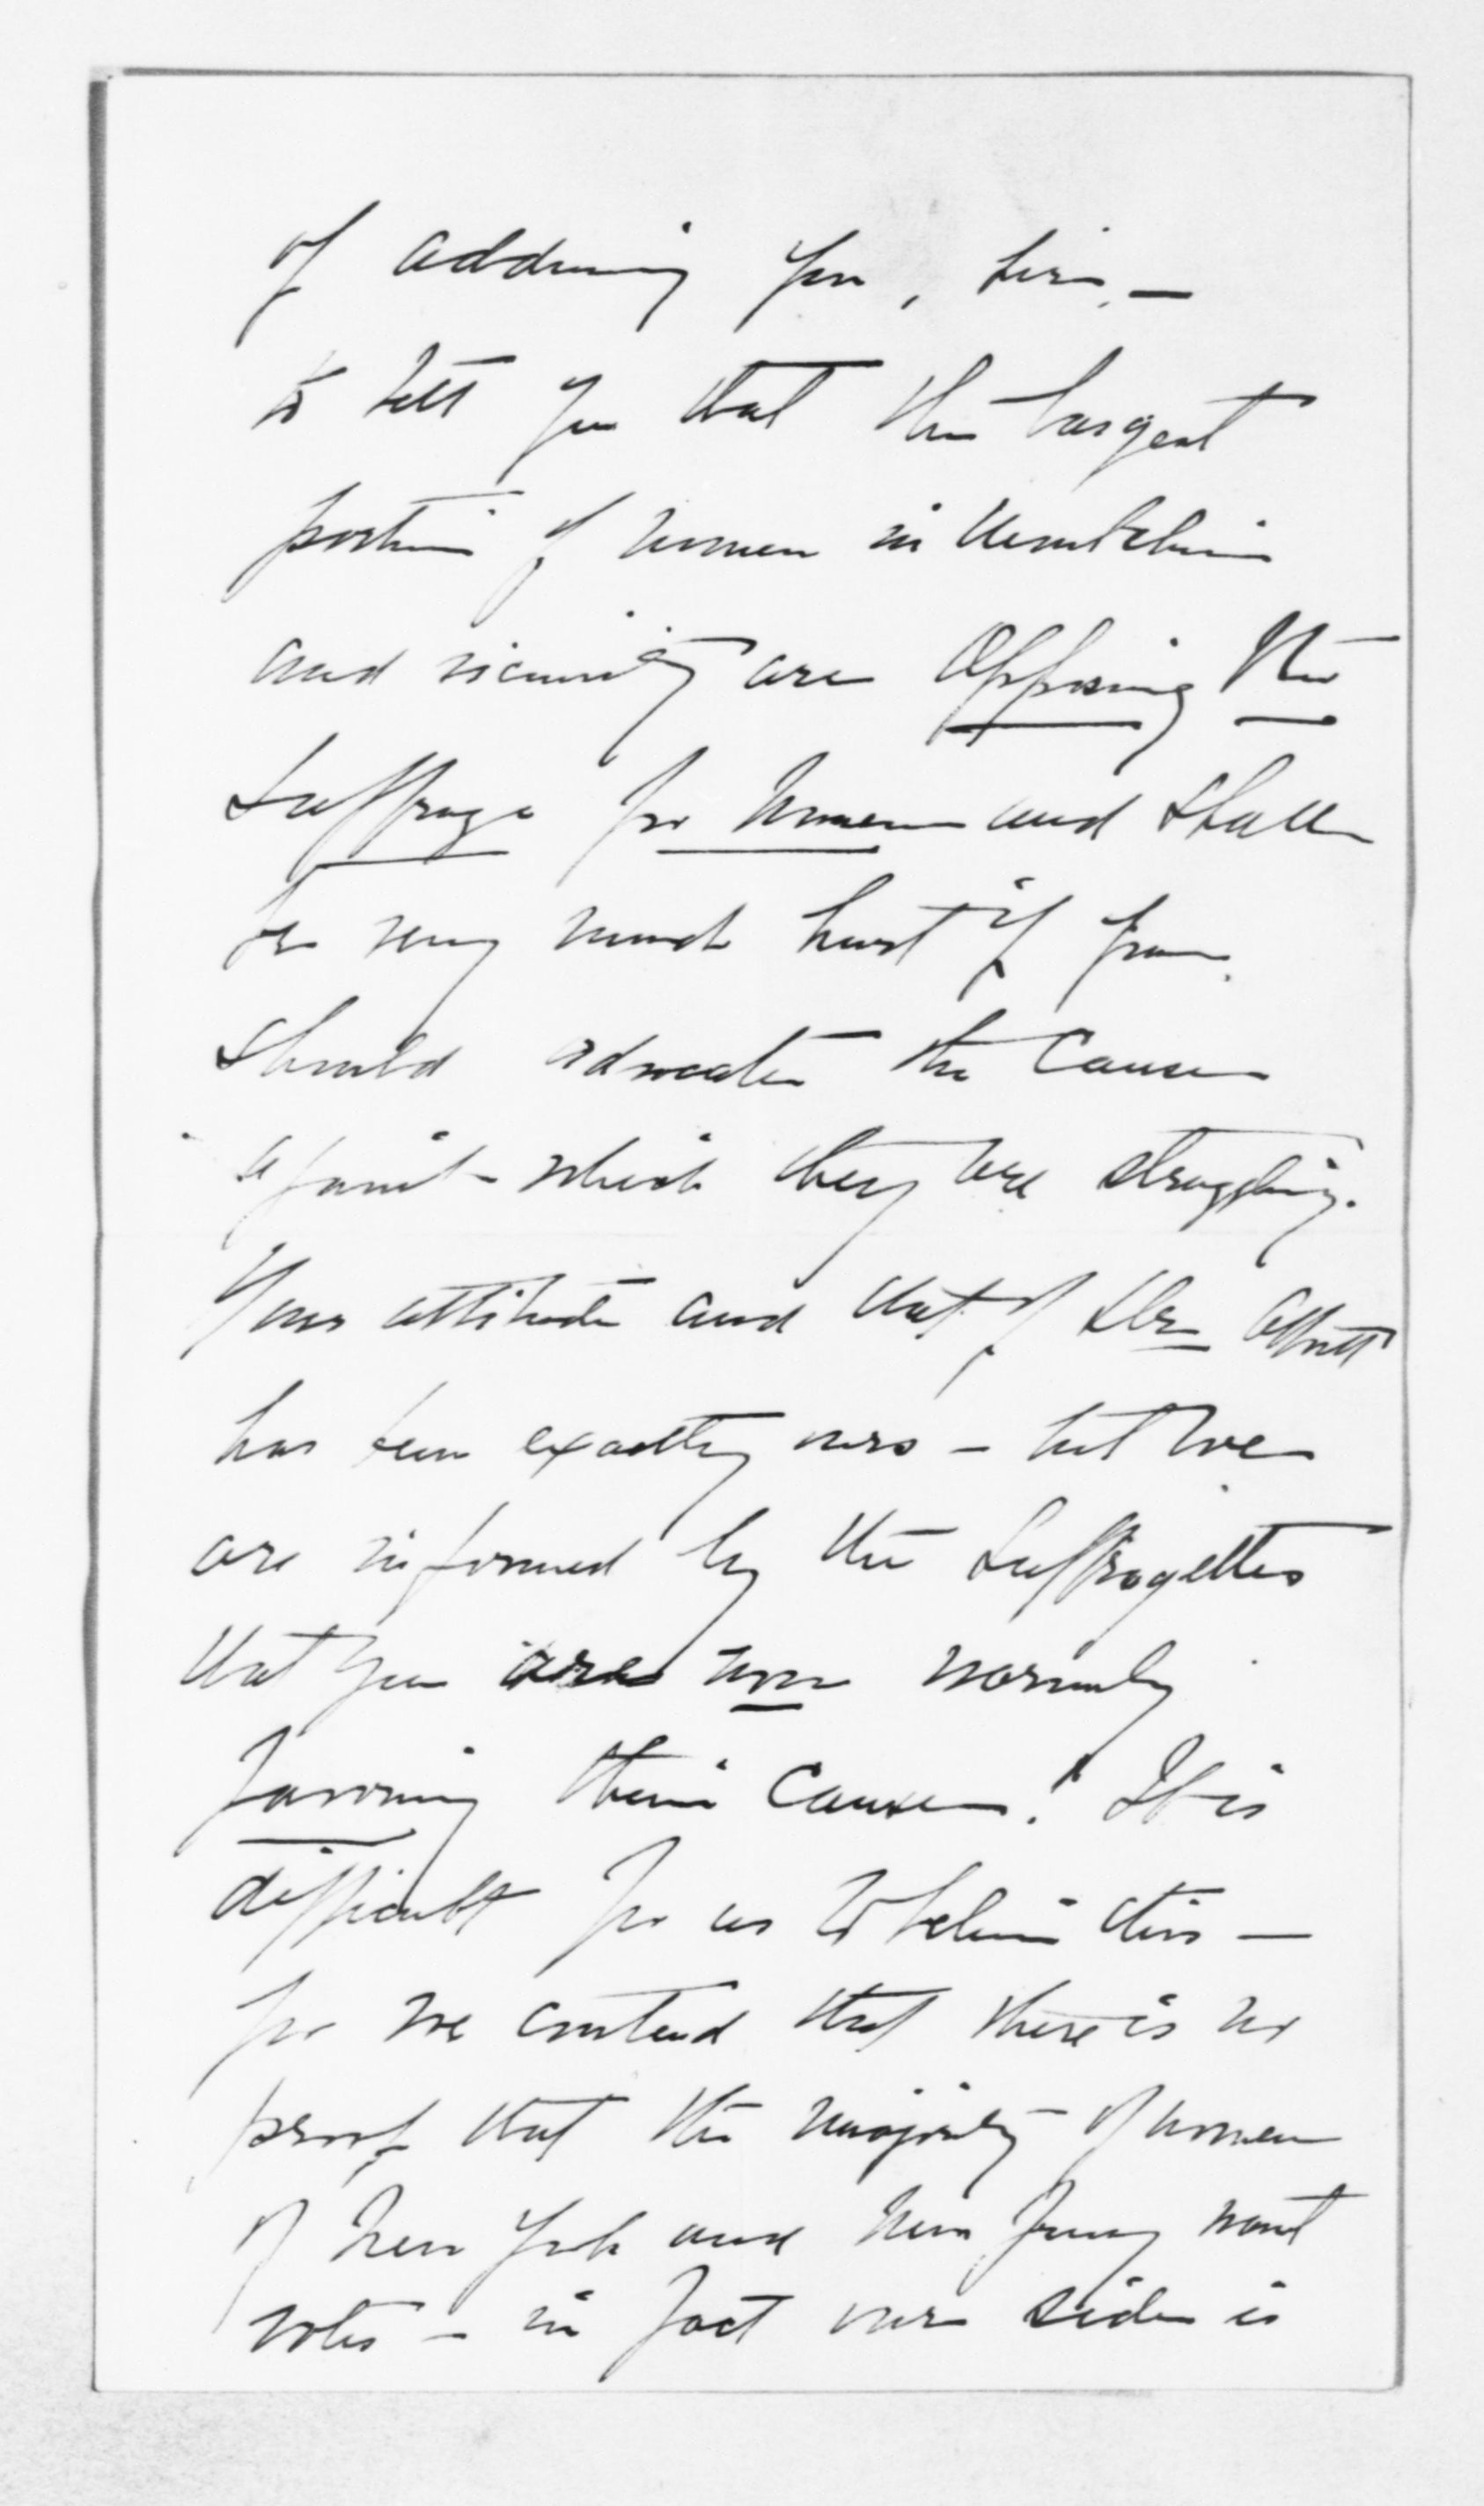 of addressing you, Sir, —
to tell you that the largest
portion of women in Montclair
and vicinity are opposing the
Suffrage for Women and shall
be very much hurt if you
should advocate the Cause
against which they are struggling.
Your attitude and that of Dr Abbott
has been exactly ours — but we
are informed by the Suffragettes
that you are now warmly
favoring their Cause! It is
difficult for us to believe this —
for we contend that there is no
proof that the majority of women
of New York and New Jersey want
votes — in fact our side is